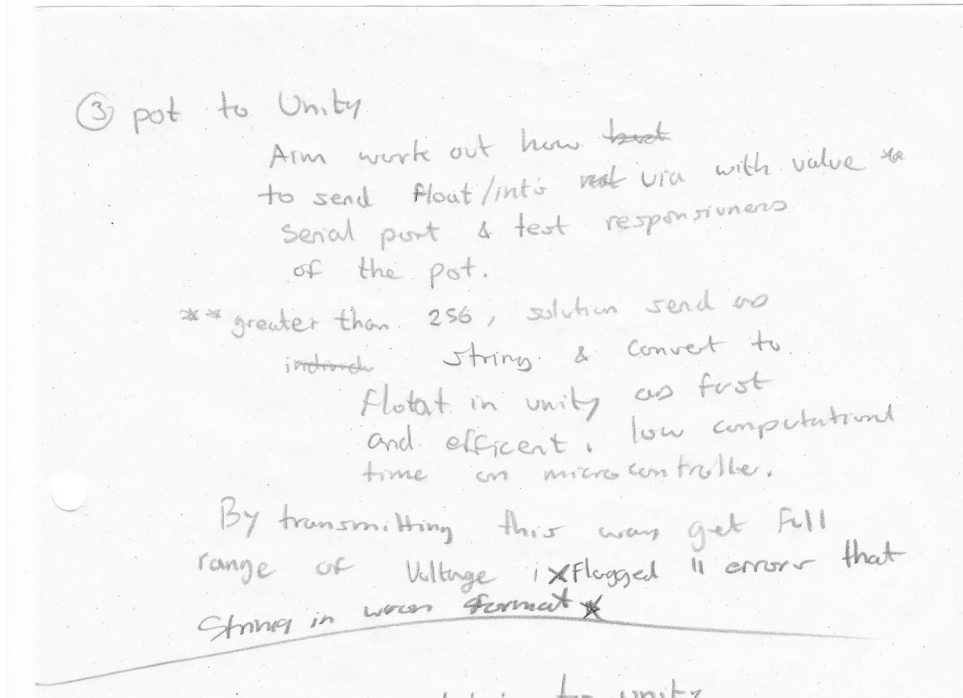 ③ pot to Unity
Aim work out how
to send float/int's via with value **
serial port & test responsivness
of the pot.
** greater than 256, solution send as
string & convert to
flotat in unity as fast
and efficent. low computational
time on microcontrolle.
By transmitting this way get full
range of Voltage, *flagged 11 errors that
string in wron format *
to unity